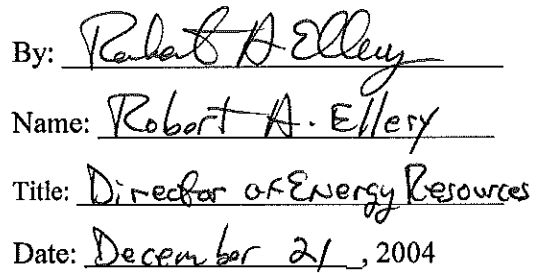 By: Robert A Ellery
Name: Robert A. Ellery
Title: Director of Energy Resources
Date: December 21, 2004